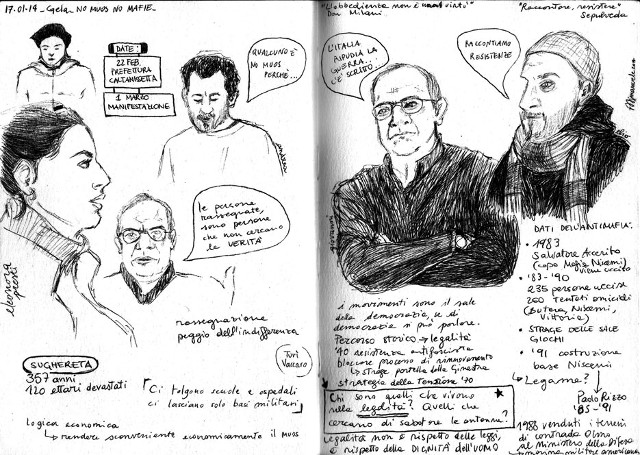 17.01.14_ Gela_ NO MUOS NO MAFIE_
DATE:
22 FEB.
PREFETTURA
CALTANISSETTA
1 MARZO
MANIFESTAZIONE
QUALCUNO È
NO MUOS
PERCHÈ...
le persone
rassegnate,
sono persone
che non cercano
la VERITÀ
eleonora
rassegnazione
peggio dell'indifferenza
Turi
Vaccaro
SUGHERETA
357 anni
120 ettari devastati
Ci tolgono scuole e ospedali
ci lasciano solo basi militari
Logica economica
↳ rendere sconveniente economicamente il MUOS
"L'obbedienza non è virtù"
Don Milani.
L'ITALIA
RIPUDIA LA
GUERRA...
C'È SCRITTO...
giovanni
"Raccontare, resistere"
Sepulveda
RACCONTIAMO
RESISTENZE
i movimenti sono il sale
della democrazia, se di
democrazia si può parlare.
Percorso storico → legalità
'40 resistenza antifascista
bloccare processo di rinnovamento
↳ strage portella della Ginestra
strategia della Tensione '70
Chi sono quelli che vivono
nella legalità? Quelli che
cercano di sabotare le antenne.
legalità non è rispetto delle leggi,
è rispetto della DIGNITÀ dell'UOMO
DATI DELL'ANTIMAFIA:
• 1983
Salvatore
(capo Mafia Niscemi)
viene ucciso
• '83-'90
235 persone uccise
200 Tentati omicidi
(Butera, Niscemi,
Vittoria)
• STRAGE DELLE SALE
GIOCHI
• '91 costruzione
base Niscemi
↳ Legame?
↳ Paolo Rizzo
'85-'91
1988 venduti i terreni
di contrada Olmo
al ministero della Difesa
marina militare americana